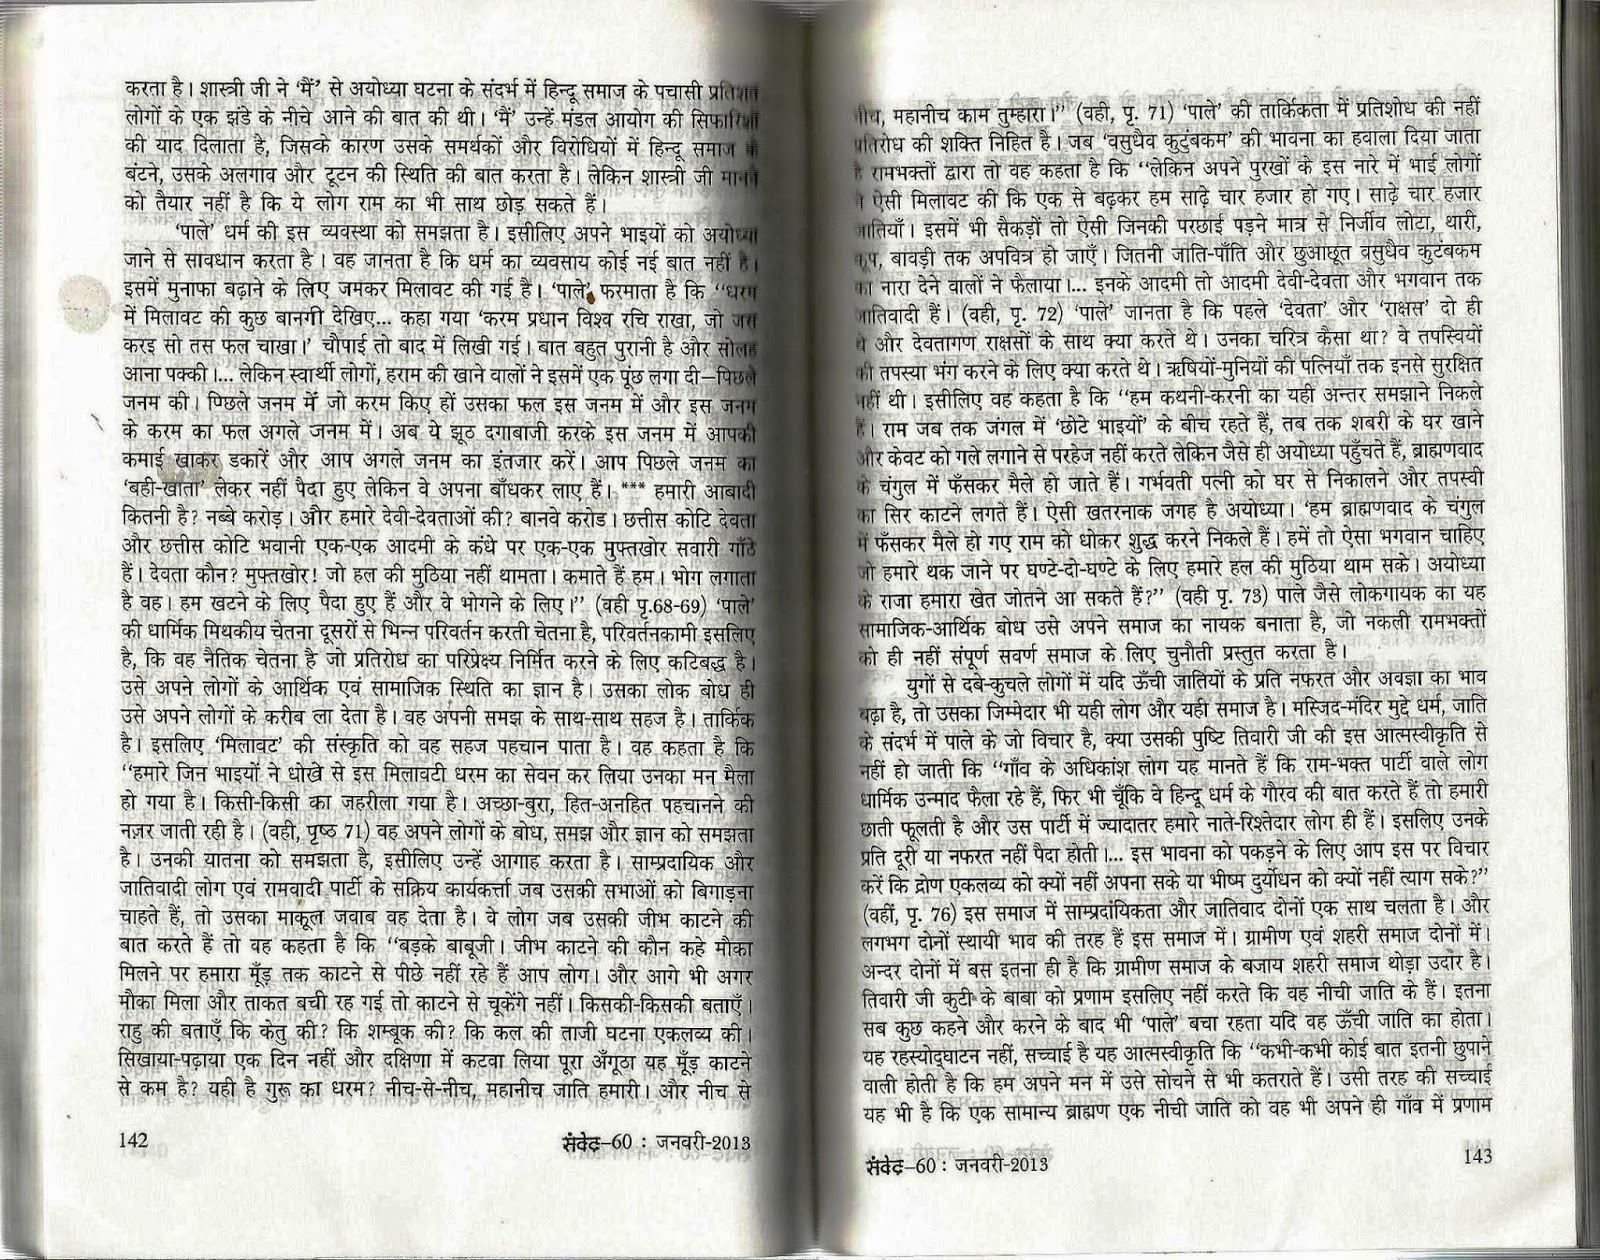 करता है। शास्त्री जी ने ‘मैं’ से अयोध्या घटना के संदर्भ में हिन्दू समाज के पचासी प्रतिशत
लोगों के एक झंडे के नीचे आने की बात की थी। ‘मैं’ उन्हें मंडल आयोग की सिफारिशों
की याद दिलाता है, जिसके कारण उसके समर्थकों और विरोधियों में हिन्दू समाज के
बंटने, उसके अलगाव और टूटन की स्थिति की बात करता है। लेकिन शास्त्री जी मानने
को तैयार नहीं है कि ये लोग राम का भी साथ छोड़ सकते हैं।
‘पाले’ धर्म की इस व्यवस्था को समझता है। इसीलिए अपने भाइयों को अयोध्या
जाने से सावधान करता है। वह जानता है कि धर्म का व्यवसाय कोई नई बात नहीं है।
इसमें मुनाफा बढ़ाने के लिए जमकर मिलावट की गई है। ‘पाले’ फरमाता है कि ‘‘धरम
में मिलावट की कुछ बानगी देखिए... कहा गया ‘करम प्रधान विश्व रचि राखा, जो जस
करइ सो तस फल चाखा।’ चौपाई तो बाद में लिखी गई। बात बहुत पुरानी है और सोलह
आना पक्की।... लेकिन स्वार्थी लोगों, हराम की खाने वालों ने इसमें एक पूंछ लगा दी—पिछले
जनम की। पिछले जनम में जो करम किए हों उसका फल इस जनम में और इस जनम
के करम का फल अगले जनम में। अब ये झूठ दगाबाजी करके इस जनम में आपकी
कमाई खाकर डकारें और आप अगले जनम का इंतजार करें। आप पिछले जनम का
‘बही-खाता’ लेकर नहीं पैदा हुए लेकिन वे अपना बाँधकर लाए हैं। *** हमारी आबादी
कितनी है? नब्बे करोड़। और हमारे देवी-देवताओं की? बानवे करोड। छत्तीस कोटि देवता
और छत्तीस कोटि भवानी एक-एक आदमी के कंधे पर एक-एक मुफ्तखोर सवारी गाँठे
हैं। देवता कौन? मुफ्तखोर! जो हल की मुठिया नहीं थामता। कमाते हैं हम। भोग लगाता
है वह। हम खटने के लिए पैदा हुए हैं और वे भोगने के लिए।’’ (वही पृ.68-69) ‘पाले’
की धार्मिक मिथकीय चेतना दूसरों से भिन्न परिवर्तन करती चेतना है, परिवर्तनकामी इसलिए
है, कि वह नैतिक चेतना है जो प्रतिरोध का परिप्रेक्ष्य निर्मित करने के लिए कटिबद्ध है।
उसे अपने लोगों के आर्थिक एवं सामाजिक स्थिति का ज्ञान है। उसका लोक बोध ही
उसे अपने लोगों के करीब ला देता है। वह अपनी समझ के साथ-साथ सहज है। तार्किक
है। इसलिए ‘मिलावट’ की संस्कृति को वह सहज पहचान पाता है। वह कहता है कि
‘‘हमारे जिन भाइयों ने धोखे से इस मिलावटी धरम का सेवन कर लिया उनका मन मैला
हो गया है। किसी-किसी का जहरीला गया है। अच्छा-बुरा, हित-अनहित पहचानने की
नज़र जाती रही है। (वही, पृष्ठ 71) वह अपने लोगों के बोध, समझ और ज्ञान को समझता
है। उनकी यातना को समझता है, इसीलिए उन्हें आगाह करता है। साम्प्रदायिक और
जातिवादी लोग एवं रामवादी पार्टी के सक्रिय कार्यकर्त्ता जब उसकी सभाओं को बिगाड़ना
चाहते हैं, तो उसका माकूल जवाब वह देता है। वे लोग जब उसकी जीभ काटने की
बात करते हैं तो वह कहता है कि ‘‘बड़के बाबूजी। जीभ काटने की कौन कहे मौका
मिलने पर हमारा मूँड़ तक काटने से पीछे नहीं रहे हैं आप लोग। और आगे भी अगर
मौका मिला और ताकत बची रह गई तो काटने से चूकेंगे नहीं। किसकी-किसकी बताएँ।
राहु की बताएँ कि केतु की? कि शम्बूक की? कि कल की ताजी घटना एकलव्य की।
सिखाया-पढ़ाया एक दिन नहीं और दक्षिणा में कटवा लिया पूरा अँगूठा यह मूँड़ काटने
से कम है? यही है गुरू का धरम? नीच-से-नीच, महानीच जाति हमारी। और नीच से
142
संवेद–60 : जनवरी-2013
नीच, महानीच काम तुम्हारा।’’ (वही, पृ. 71) ‘पाले’ की तार्किकता में प्रतिशोध की नहीं
प्रतिरोध की शक्ति निहित है। जब ‘वसुधैव कुटुंबकम’ की भावना का हवाला दिया जाता
है रामभक्तों द्वारा तो वह कहता है कि ‘‘लेकिन अपने पुरखों के इस नारे में भाई लोगों
ने ऐसी मिलावट की कि एक से बढ़कर हम साढ़े चार हजार हो गए। साढ़े चार हजार
जातियाँ। इसमें भी सैकड़ों तो ऐसी जिनकी परछाई पड़ने मात्र से निर्जीव लोटा, थारी,
कूप, बावड़ी तक अपवित्र हो जाएँ। जितनी जाति-पाँति और छुआछूत वसुधैव कुटंबकम
का नारा देने वालों ने फैलाया।... इनके आदमी तो आदमी देवी-देवता और भगवान तक
जातिवादी हैं। (वही, पृ. 72) ‘पाले’ जानता है कि पहले ‘देवता’ और ‘राक्षस’ दो ही
थे और देवतागण राक्षसों के साथ क्या करते थे। उनका चरित्र कैसा था? वे तपस्वियों
की तपस्या भंग करने के लिए क्या करते थे। ऋषियों-मुनियों की पत्नियाँ तक इनसे सुरक्षित
नहीं थी। इसीलिए वह कहता है कि ‘‘हम कथनी-करनी का यही अन्तर समझाने निकले
हैं। राम जब तक जंगल में ‘छोटे भाइयों’ के बीच रहते हैं, तब तक शबरी के घर खाने
और केवट को गले लगाने से परहेज नहीं करते लेकिन जैसे ही अयोध्या पहुँचते हैं, ब्राह्मणवाद
के चंगुल में फँसकर मैले हो जाते हैं। गर्भवती पत्नी को घर से निकालने और तपस्वी
का सिर काटने लगते हैं। ऐसी खतरनाक जगह है अयोध्या। ‘हम ब्राह्मणवाद के चंगुल
में फँसकर मैले हो गए राम को धोकर शुद्ध करने निकले हैं। हमें तो ऐसा भगवान चाहिए
जो हमारे थक जाने पर घण्टे-दो-घण्टे के लिए हमारे हल की मुठिया थाम सके। अयोध्या
के राजा हमारा खेत जोतने आ सकते हैं?’’ (वही पृ. 73) पाले जैसे लोकगायक का यह
सामाजिक-आर्थिक बोध उसे अपने समाज का नायक बनाता है, जो नकली रामभक्तों
को ही नहीं संपूर्ण सवर्ण समाज के लिए चुनौती प्रस्तुत करता है।
युगों से दबे-कुचले लोगों में यदि ऊँची जातियों के प्रति नफरत और अवज्ञा का भाव
बढ़ा है, तो उसका जिम्मेदार भी यही लोग और यही समाज है। मस्जिद-मंदिर मुद्दे धर्म, जाति
के संदर्भ में पाले के जो विचार है, क्या उसकी पुष्टि तिवारी जी की इस आत्मस्वीकृति से
नहीं हो जाती कि ‘‘गाँव के अधिकांश लोग यह मानते हैं कि राम-भक्त पार्टी वाले लोग
धार्मिक उन्माद फैला रहे हैं, फिर भी चूँकि वे हिन्दू धर्म के गौरव की बात करते हैं तो हमारी
छाती फूलती है और उस पार्टी में ज्यादातर हमारे नाते-रिश्तेदार लोग ही हैं। इसलिए उनके
प्रति दूरी या नफरत नहीं पैदा होती।... इस भावना को पकड़ने के लिए आप इस पर विचार
करें कि द्रोण एकलव्य को क्यों नहीं अपना सके या भीष्म दुर्योधन को क्यों नहीं त्याग सके?’’
(वहीं, पृ. 76) इस समाज में साम्प्रदायिकता और जातिवाद दोनों एक साथ चलता है। और
लगभग दोनों स्थायी भाव की तरह हैं इस समाज में। ग्रामीण एवं शहरी समाज दोनों में।
अन्दर दोनों में बस इतना ही है कि ग्रामीण समाज के बजाय शहरी समाज थोड़ा उदार है।
तिवारी जी कुटी के बाबा को प्रणाम इसलिए नहीं करते कि वह नीची जाति के हैं। इतना
सब कुछ कहने और करने के बाद भी ‘पाले’ बचा रहता यदि वह ऊँची जाति का होता।
यह रहस्योद्घाटन नहीं, सच्चाई है यह आत्मस्वीकृति कि ‘‘कभी-कभी कोई बात इतनी छुपाने
वाली होती है कि हम अपने मन में उसे सोचने से भी कतराते हैं। उसी तरह की सच्चाई
यह भी है कि एक सामान्य ब्राह्मण एक नीची जाति को वह भी अपने ही गाँव में प्रणाम
संवेद–60 : जनवरी-2013
143